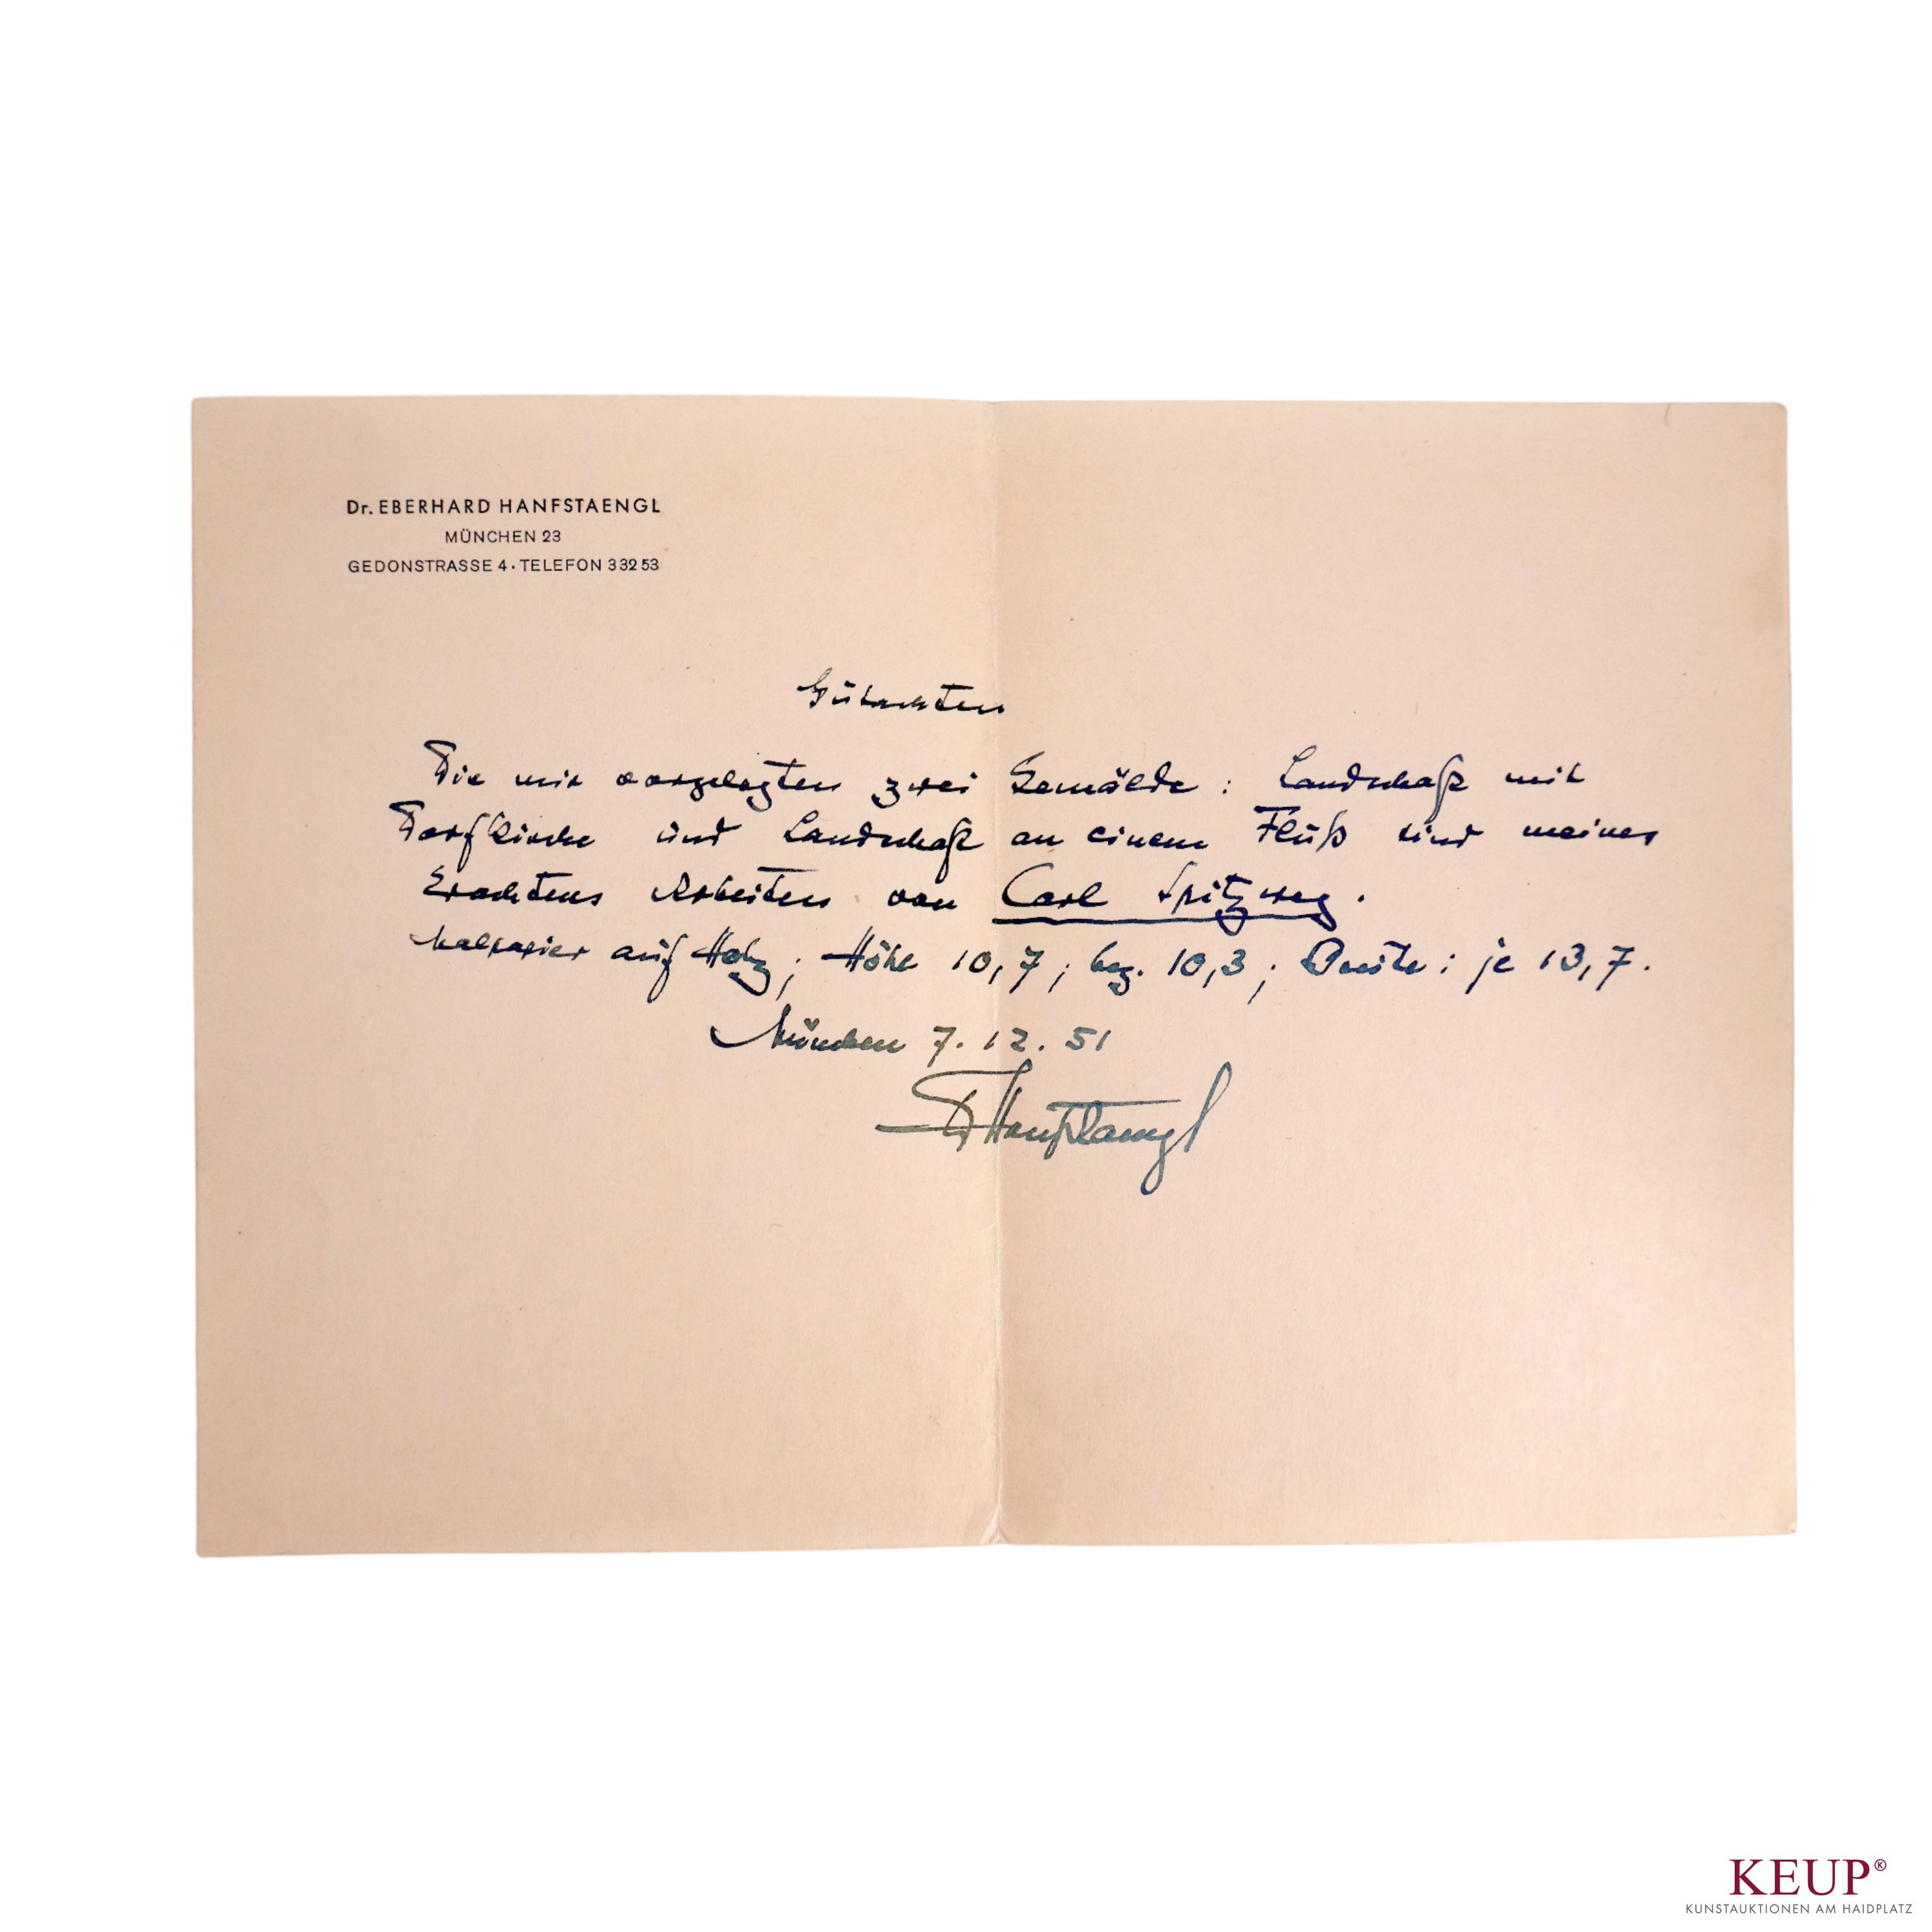 Dr. EBERHARD HANFSTAENGL
MÜNCHEN 23
GEDONSTRASSE 4 · TELEFON 33253
Gutachten
Die mir vorgelegten zwei Gemälde : Landschaft mit
Dorfkirche und Landschaft an einem Fluß sind meines
Erachtens Arbeiten von Carl Spitzweg .
Malpapier auf Holz ; Höhe 10,7 ; bez. 10,3 ; Breite : je 13,7 .
München 7. 12. 51
Dr Hanfstaengl
KEUP®
KUNSTAUKTIONEN AM HAIDPLATZ